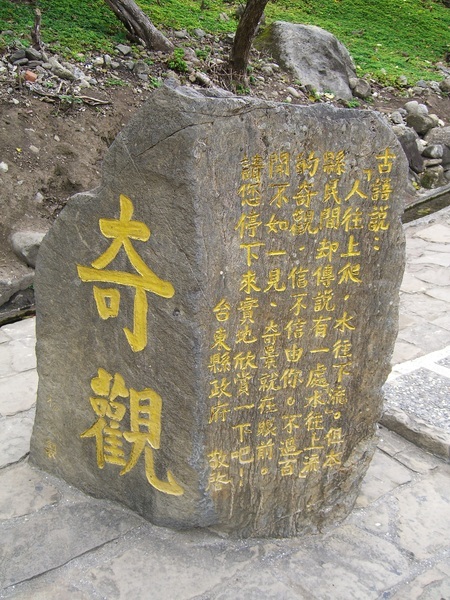 奇觀
古語說：
「人往上爬，水往下流。但本
縣民間却傳說有一處水往上流
的奇觀，信不信由你。不過百
聞不如一見，奇景就在眼前。
請您停下來實地欣賞一下吧！
台東縣政府 敬啓